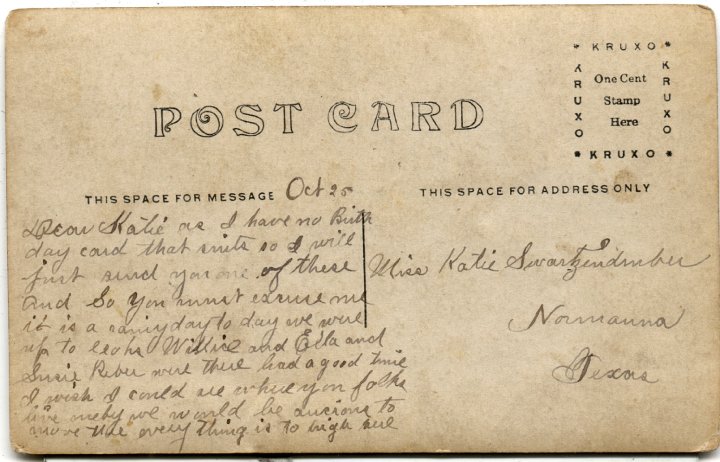 * KRUXO *
KRUXO
One Cent
Stamp
Here
KRUXO
* KRUXO *
POST CARD
THIS SPACE FOR MESSAGE
Oct 25
THIS SPACE FOR ADDRESS ONLY
Dear Katie as I have no Birth
day card that suits so I will
just send you one of these
and So you must excuse me
it is a rainy day to day we were
up to Willie and Ella and
Susie Reber were there had a good time
I wish I could see where you folks
live we would be to
move there every thing is to high here
Miss Katie Swartzendruber
Normanna
Texas